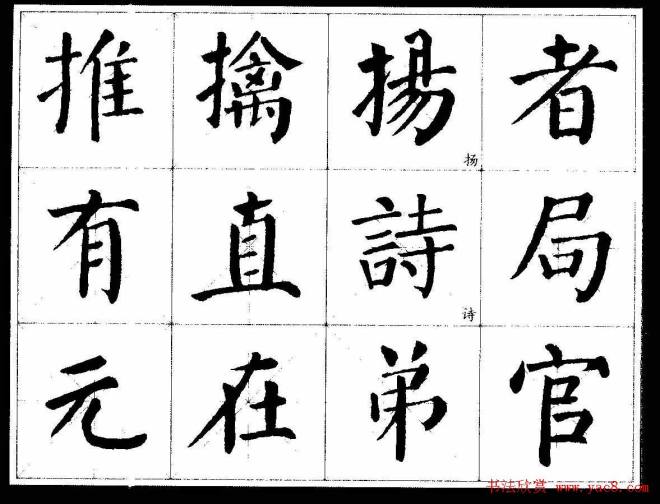 推 擒 揚 者
扬
有 直 詩 局
诗
元 在 弟 官
书法欣赏 www.yac8.com